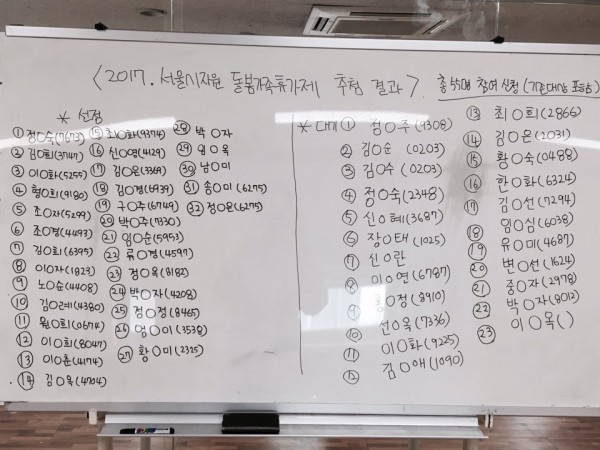 <2017. 서울시지원 돌봄가족휴가제 추첨 결과>
총 55명 참여 신청 (기존대상 포함)
* 선정
① 정O숙(7673)
② 김O희(3747)
③ 이O화(5255)
④ 형O희(9180)
⑤ 조O자(5299)
⑥ 조O경(4493)
⑦ 김O희(6395)
⑧ 이O자(1829)
⑨ 노O순(4408)
⑩ 김O례(4380)
⑪ 원O희(0674)
⑫ 이O희(8047)
⑬ 이O춘(4174)
⑭ 김O욱(4704)
⑮ 최O화(9374)
⑯ 신O영(4129)
⑰ 김O은(3369)
⑱ 김O경(6939)
⑲ 구O주(6749)
⑳ 박O주(7330)
㉑ 임O순(5953)
㉒ 류O경(4597)
㉓ 정O옥(8182)
㉔ 박O자(4208)
㉕ 정O정(8465)
㉖ 엄O미(3538)
㉗ 황O미(2325)
㉘ 박O자
㉙ 엄O옥
㉚ 남O미
㉛ 송O미(6275)
㉜ 정O은(6275)
* 대기
① 정O주(9308)
② 김O순(0203)
③ 김O수(0203)
④ 정O숙(2348)
⑤ 신O혜(3687)
⑥ 장O태(1025)
⑦ 신O란
⑧ 이O연(6787)
⑨ O정(8910)
⑩ 선O옥(7336)
⑪ 이O화(9225)
⑫ 김O애(1090)
⑬ 최O희(2866)
⑭ 김O은(2031)
⑮ 황O숙(0488)
⑯ 한O화(6324)
⑰ 김O선(7294)
⑱ 임O심(6038)
⑲ 유O미(4687)
⑳ 변O선(1624)
㉑ 중O자(2978)
㉒ 박O자(8012)
㉓ 이O옥( )